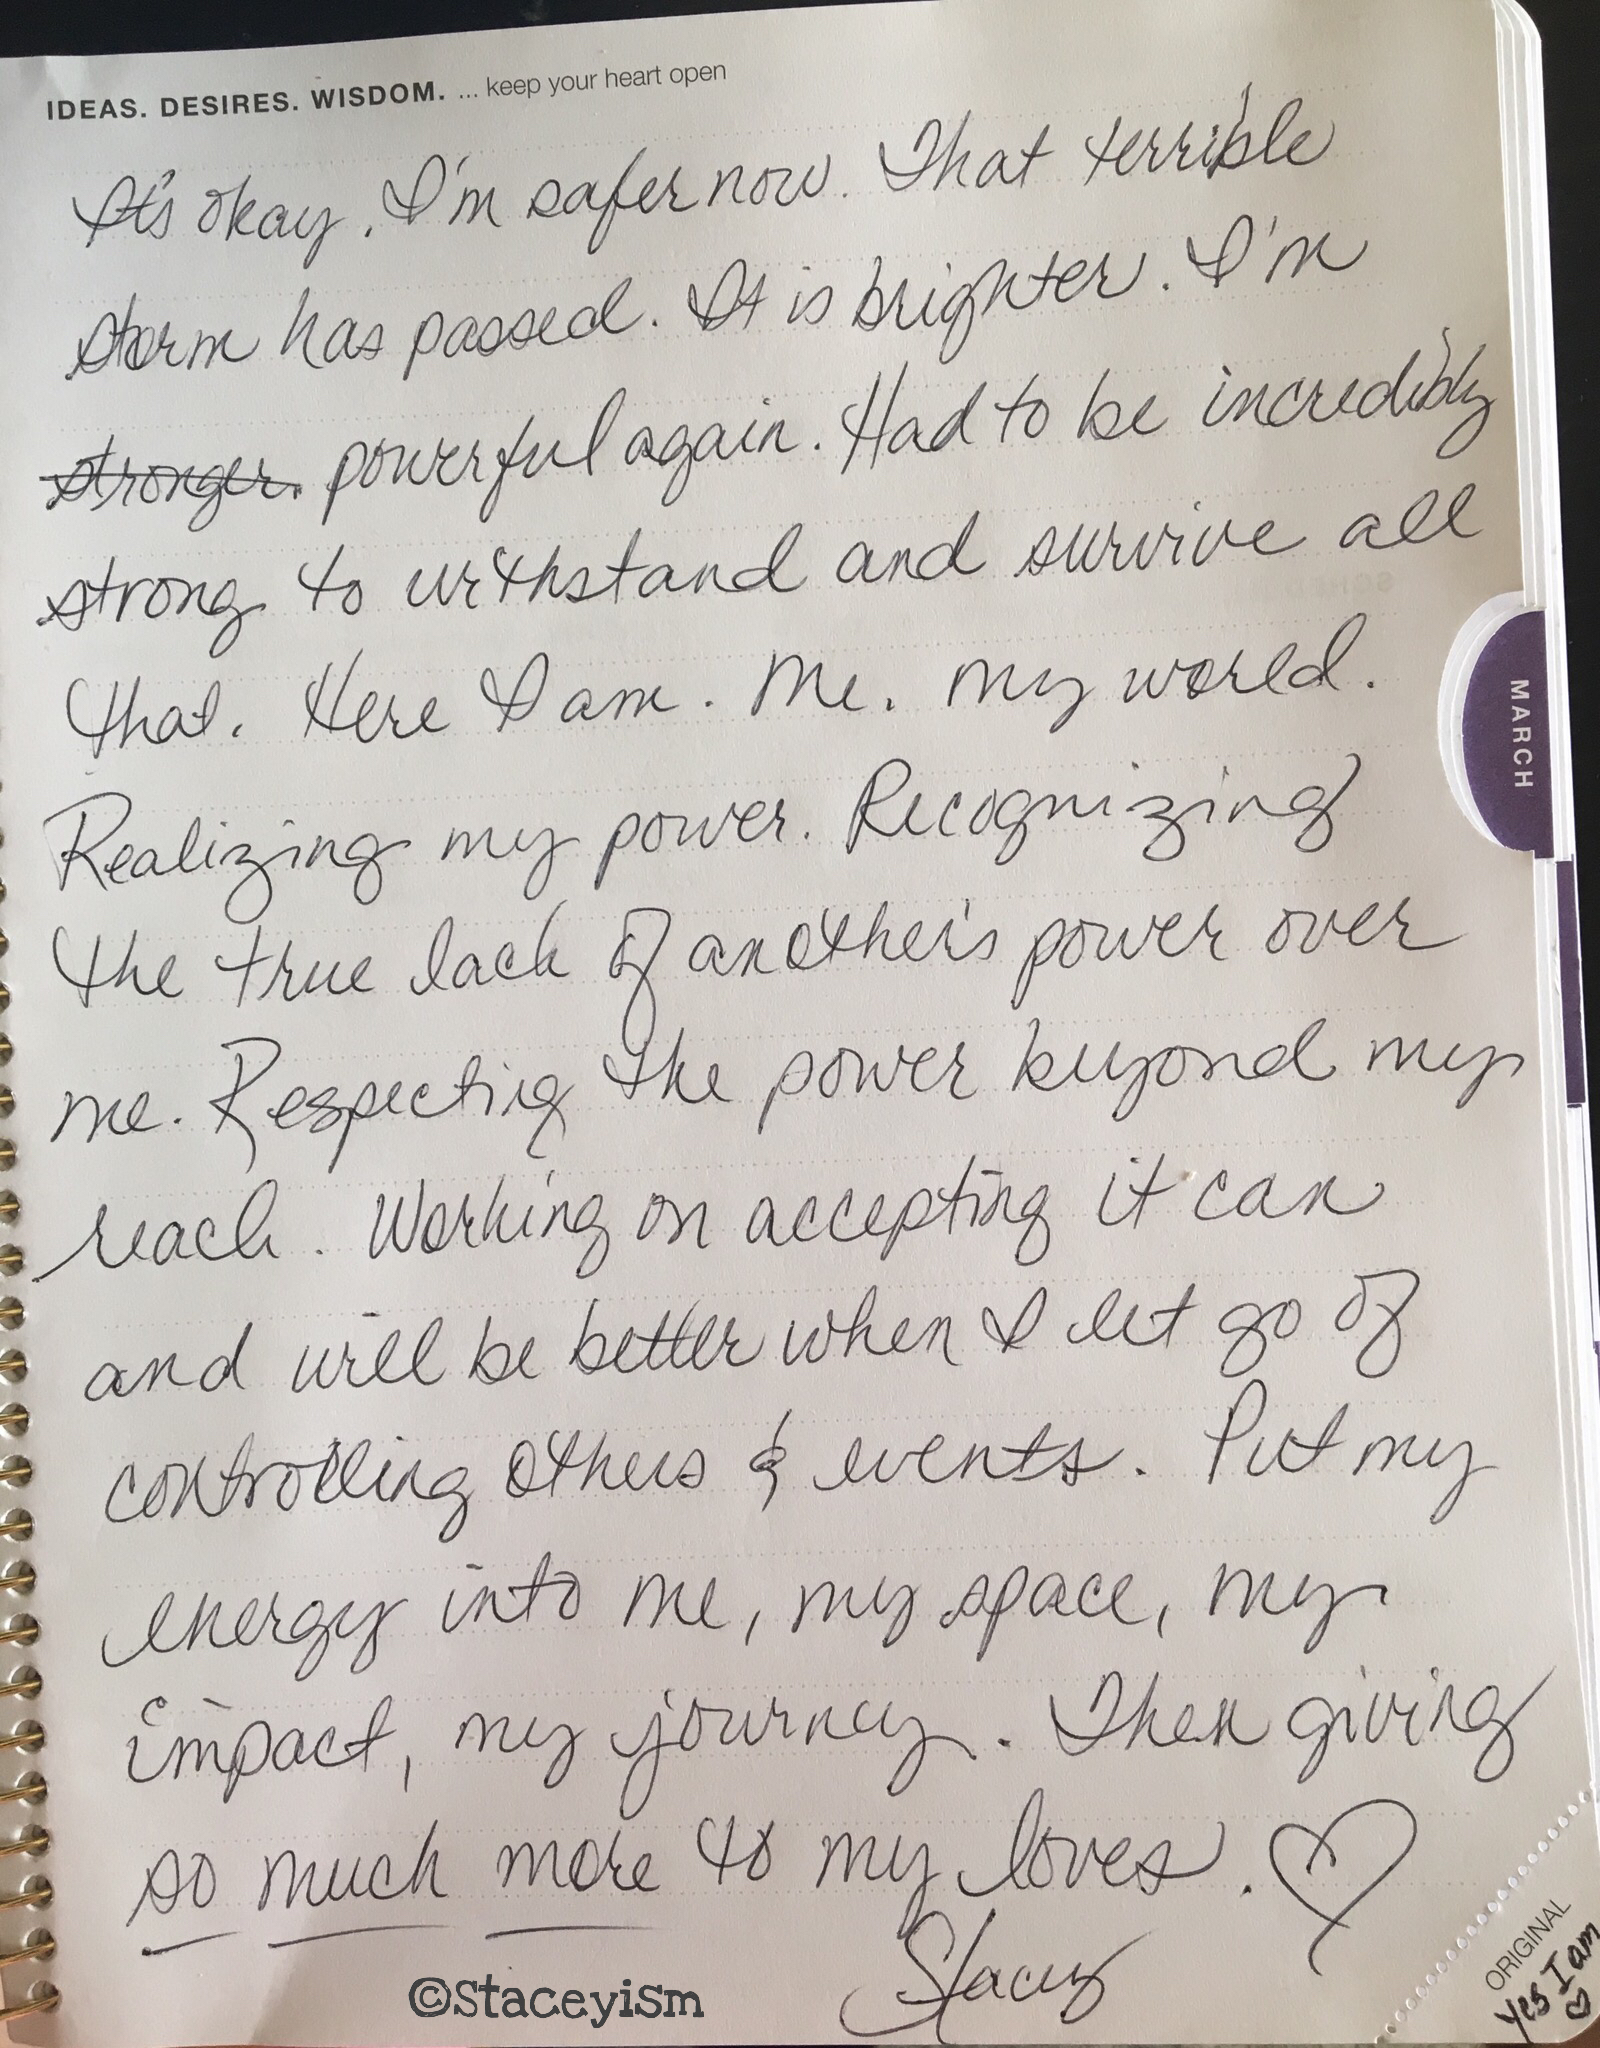 IDEAS. DESIRES. WISDOM. ... keep your heart open
It's okay. I'm safer now. That terrible
storm has passed. It is brighter. I'm
stronger. powerful again. Had to be incredibly
strong to withstand and survive all
that. Here I am. Me. My world.
Realizing my power. Recognizing
the true lack of another's power over
me. Respecting the power beyond my
reach. Working on accepting it can
and will be better when I let go of
controlling others & events. Put my
energy into me, my space, my
impact, my journey. Then giving
so much more to my loves. ♡
Stacey
©Staceyism
MARCH
ORIGINAL
Yes I am
♡